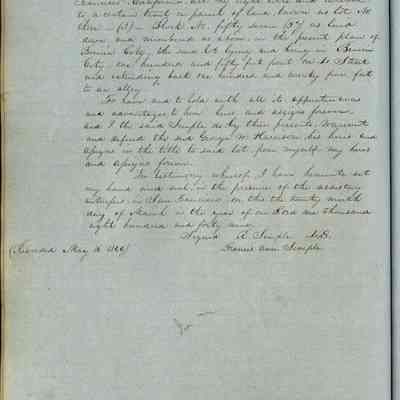 to a certain tract or parcel of land, known as Lot No
three — (3) — Block No. fifty seven (57) as laid
down and numbered as above, in the present plan of
Benicia City, the said lot lying and being in Benicia
City, one hundred and fifty feet front on H. Street
and extending back one hundred and twenty five feet
to an alley
To have and to hold with all its appurtenances
and advantages to him heirs and assigns forever.
and I the said Semple do by these presents, Warrant
and defend the said George W. Harrison his heirs and
assigns in the title to said lot from myself my heirs
and assigns forever.
In testimony whereof I have hereunto set
my hand and seal in the presence of the
witnesses, in San Francisco on this the twenty ninth
day of March in the year of our Lord one thousand
eight hundred and forty nine.
Signed R. Semple
Francis Ann Semple
(Recorded May